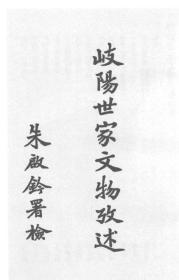 岐陽世家文物攷述
朱啟鈐署檢